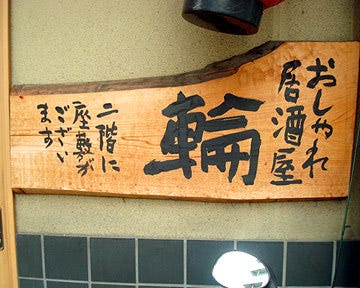 おしゃれ
居酒屋
輪
二階に
座敷が
ござい
ます